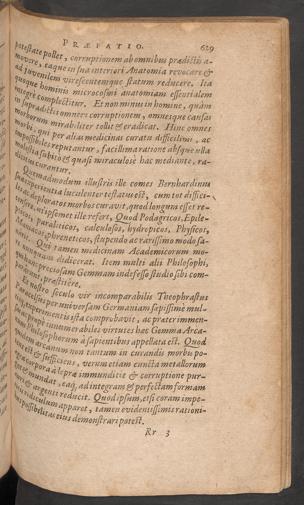 PRÆFATIO. 629
potestate pollet, corruptionem ab omnibus prædictis a-
movere, eaque in sua interiori Anatomia revocare &
ad juvenilem virescentemque statum reducere. Ita
quoque hominis microcosmi anatomiam essentialem
integrè complectitur. Et non minus in homine, quàm
in supradictis omnes corruptionem, omnesque causas
morborum mirabiliter tollit & eradicat. Hinc omnes
morbi, qui per alias medicinas curatu difficilimi, ac
impossibiles reputantur, facillima ratione absque ulla
molestia subitò & quasi miraculosè hac mediante, ra-
dicitus curantur.
Quemadmodum illustris ille comes Bernhardinus
experientia luculenter testatus est, cum tot diffici-
les ac deploratos morbos curavit, quod longum esset re-
censere, uti ipsemet ille refert, Quod Podagricos, Epile-
pticos, paraliticos, calculosos, hydropicos, Physicos,
maniacos, phreneticos, stupendo ac rarissimo modo sa-
navit. Qui tamen medicinam Academicorum mo-
re nunquam didicerat. Item multi alii Philosophi,
per hanc preciosam Gemmam indefesso studio sibi com-
paratam, præstitêre.
Et nostro sæculo vir incomparabilis Theophrastus
Paracelsus per universam Germaniam sæpissimè mul-
tis experimentis ista comprobavit, ac præter immen-
sas atque innumerabiles virtutes hæc Gemma Arca-
num Philosophorum à sapientibus appellata est. Quod
quidem arcanum non tantum in curandis morbis po-
tens est & sufficiens, verum etiam cuncta metallorum
ægra corpora à lepræ immunditie & corruptione pur-
gat & mundat, eaq, ad integram & perfectam formam
auri & argenti reducit. Quod ipsum, etsi coram impe-
ritis ridiculum apparet, tamen evidentissimis rationi-
bus possibilitas ejus demonstrari potest.
Rr 3